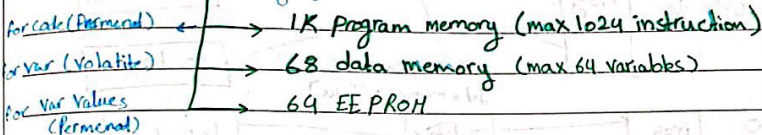 for code (Permenal) 1K program memory (max 1024 instruction)
for var (volatite) 68 data memory (max 64 variables)
for var values 64 EE PROM
(Permenal)